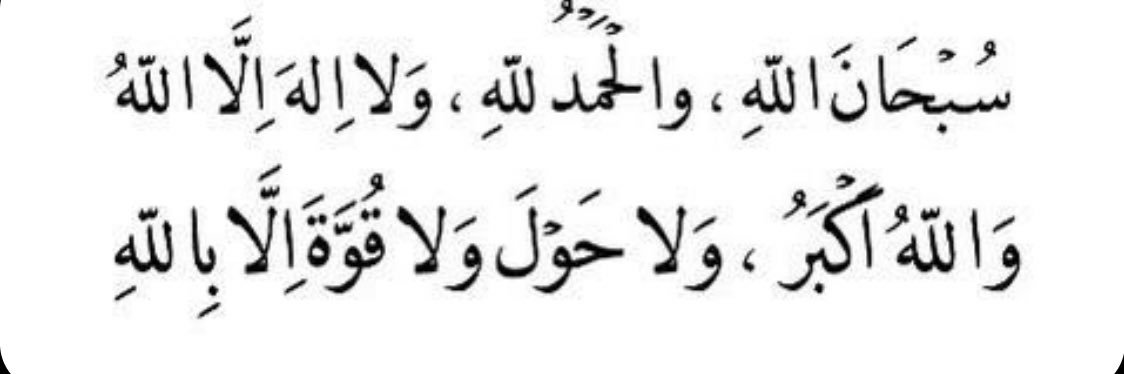 سُبْحَانَ اللّٰهِ ، والْحَمْدُ لِلّٰهِ ، وَلا اِلهَ اِلَّا اللّٰهُ
وَاللّٰهُ اَكْبَرُ ، وَلا حَوْلَ وَلا قُوَّةَ اِلَّا بِاللّٰهِ